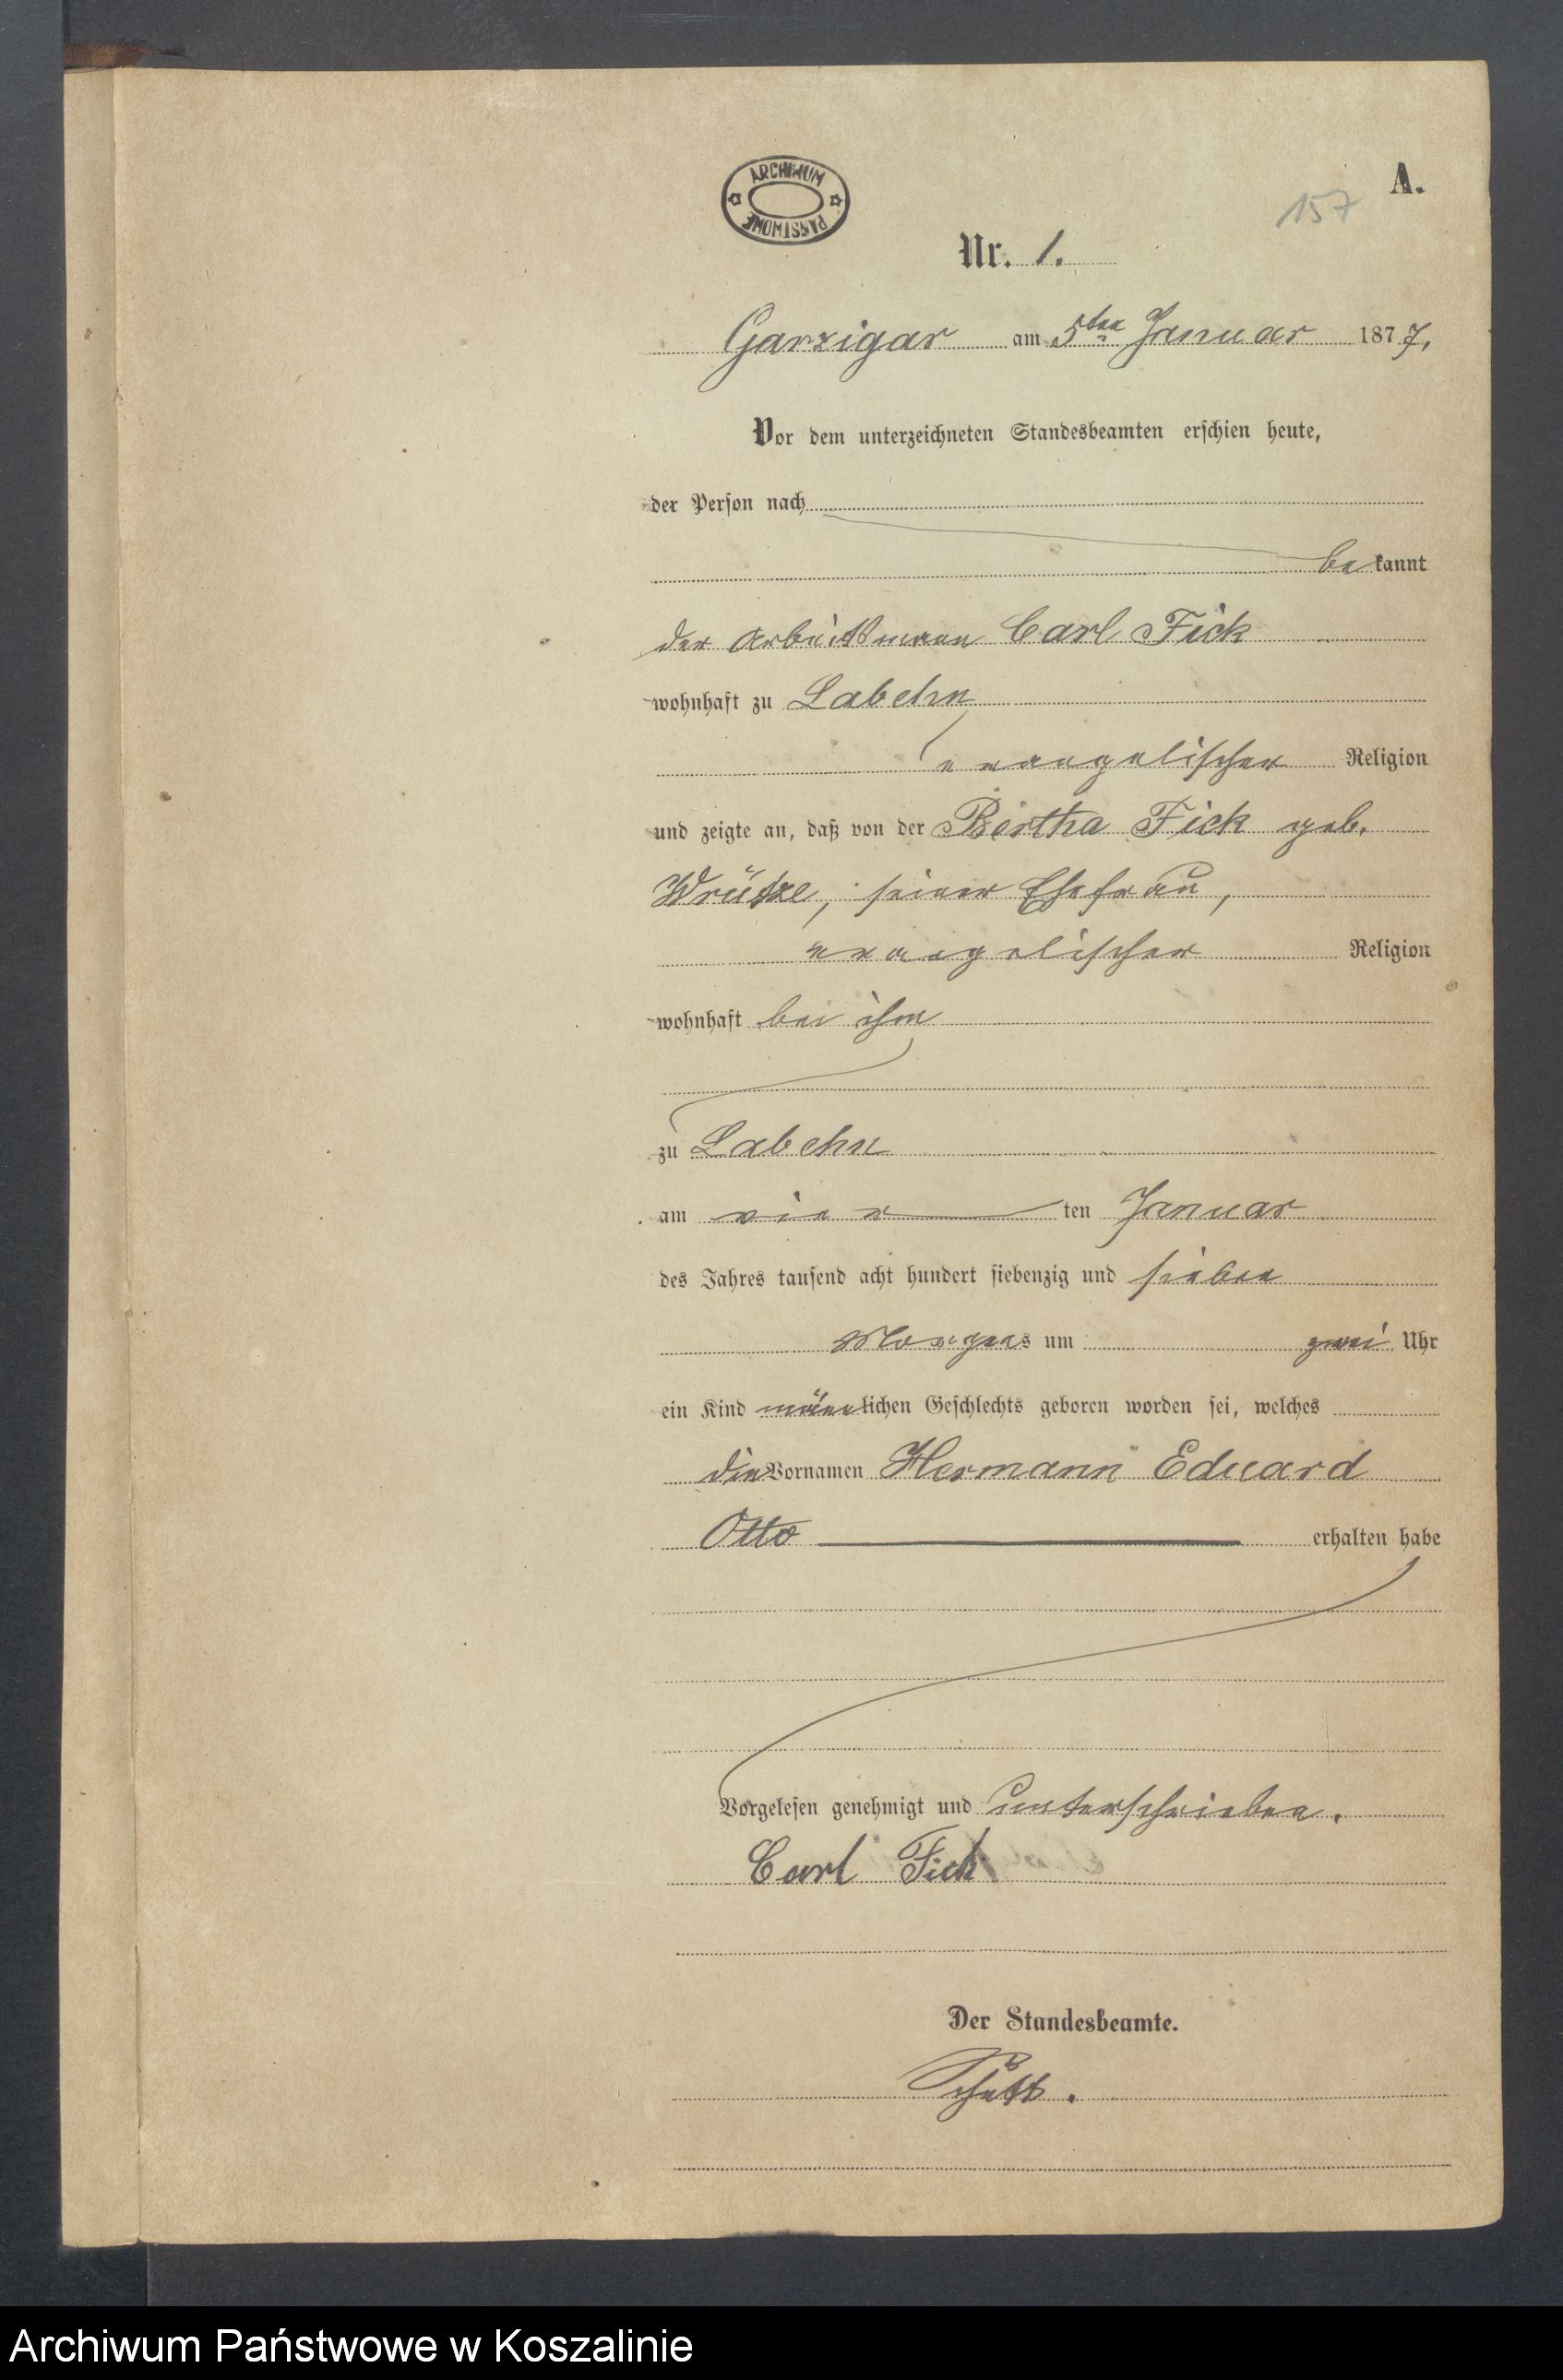 ARCHIWUM PAŃSTWOWE
A.
157
Nr. 1.
Garzigar am 5ten Januar 1877,
Vor dem unterzeichneten Standesbeamten erschien heute,
der Person nach
bekannt
der Arbeitsmann Carl Fick
wohnhaft zu Labehn
evangelischer Religion
und zeigte an, daß von der Bertha Fick geb.
Wrütze, seiner Ehefrau,
evangelischer Religion
wohnhaft bei ihm
zu Labehn
am vier ten Januar
des Jahres tausend acht hundert siebenzig und sieben
Morgens um zwei Uhr
ein Kind männlichen Geschlechts geboren worden sei, welches
die Vornamen Hermann Eduard
Otto erhalten habe
Vorgelesen genehmigt und unterschrieben.
Carl Fick
Der Standesbeamte.
Archiwum Państwowe w Koszalinie